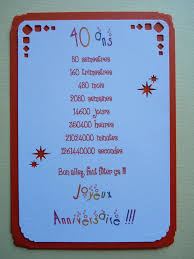 40 ans
80 semestres
160 trimestres
480 mois
2080 semaines
14600 jours
350400 heures
21024000 minutes
1261440000 secondes
Bon alley, faut fêter ça !!!
Joyeux
Anniversaire !!!